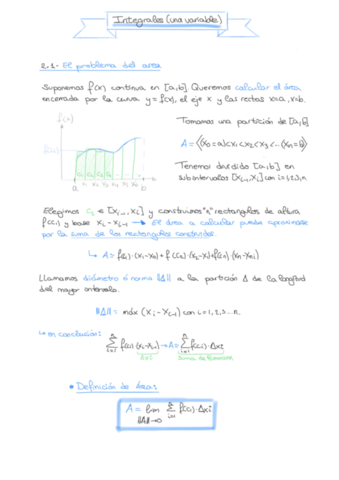 Integrales (una variable)
2.1.- El problema del área
Suponemos f(x) continua en [a,b]. Queremos calcular el área
encerrada por la curva y = f(x), el eje x y las rectas x=a, x=b.
f(x)
Tomamos una partición de [a,b]
Δ = {(x₀=a)<x₁<x₂<x₃<...(xₙ=b)}
Tenemos dividido [a,b] en
subintervalos [xᵢ₋₁,xᵢ] con i=1,2,3,n.
a
b
x
Elegimos Cᵢ ∈ [xᵢ₋₁, xᵢ] y construimos "n" rectángulos de altura
f(Cᵢ) y base xᵢ - xᵢ₋₁ → El área a calcular puede aproximarse
por la suma de los rectángulos construidos.
Llamamos diámetro ó norma ||Δ|| a la partición Δ de la longitud
del mayor intervalo.
||Δ|| = máx (xᵢ - xᵢ₋₁) con i = 1,2,3...n.
↳ en conclusión:
Σ f(Cᵢ)·(xᵢ-xᵢ₋₁) → A = Σ f(Cᵢ)·Δxᵢ
Δxᵢ
Suma de Riemann
• Definición de área:
A = lim Σ f(Cᵢ)·Δxᵢ
||Δ||→0